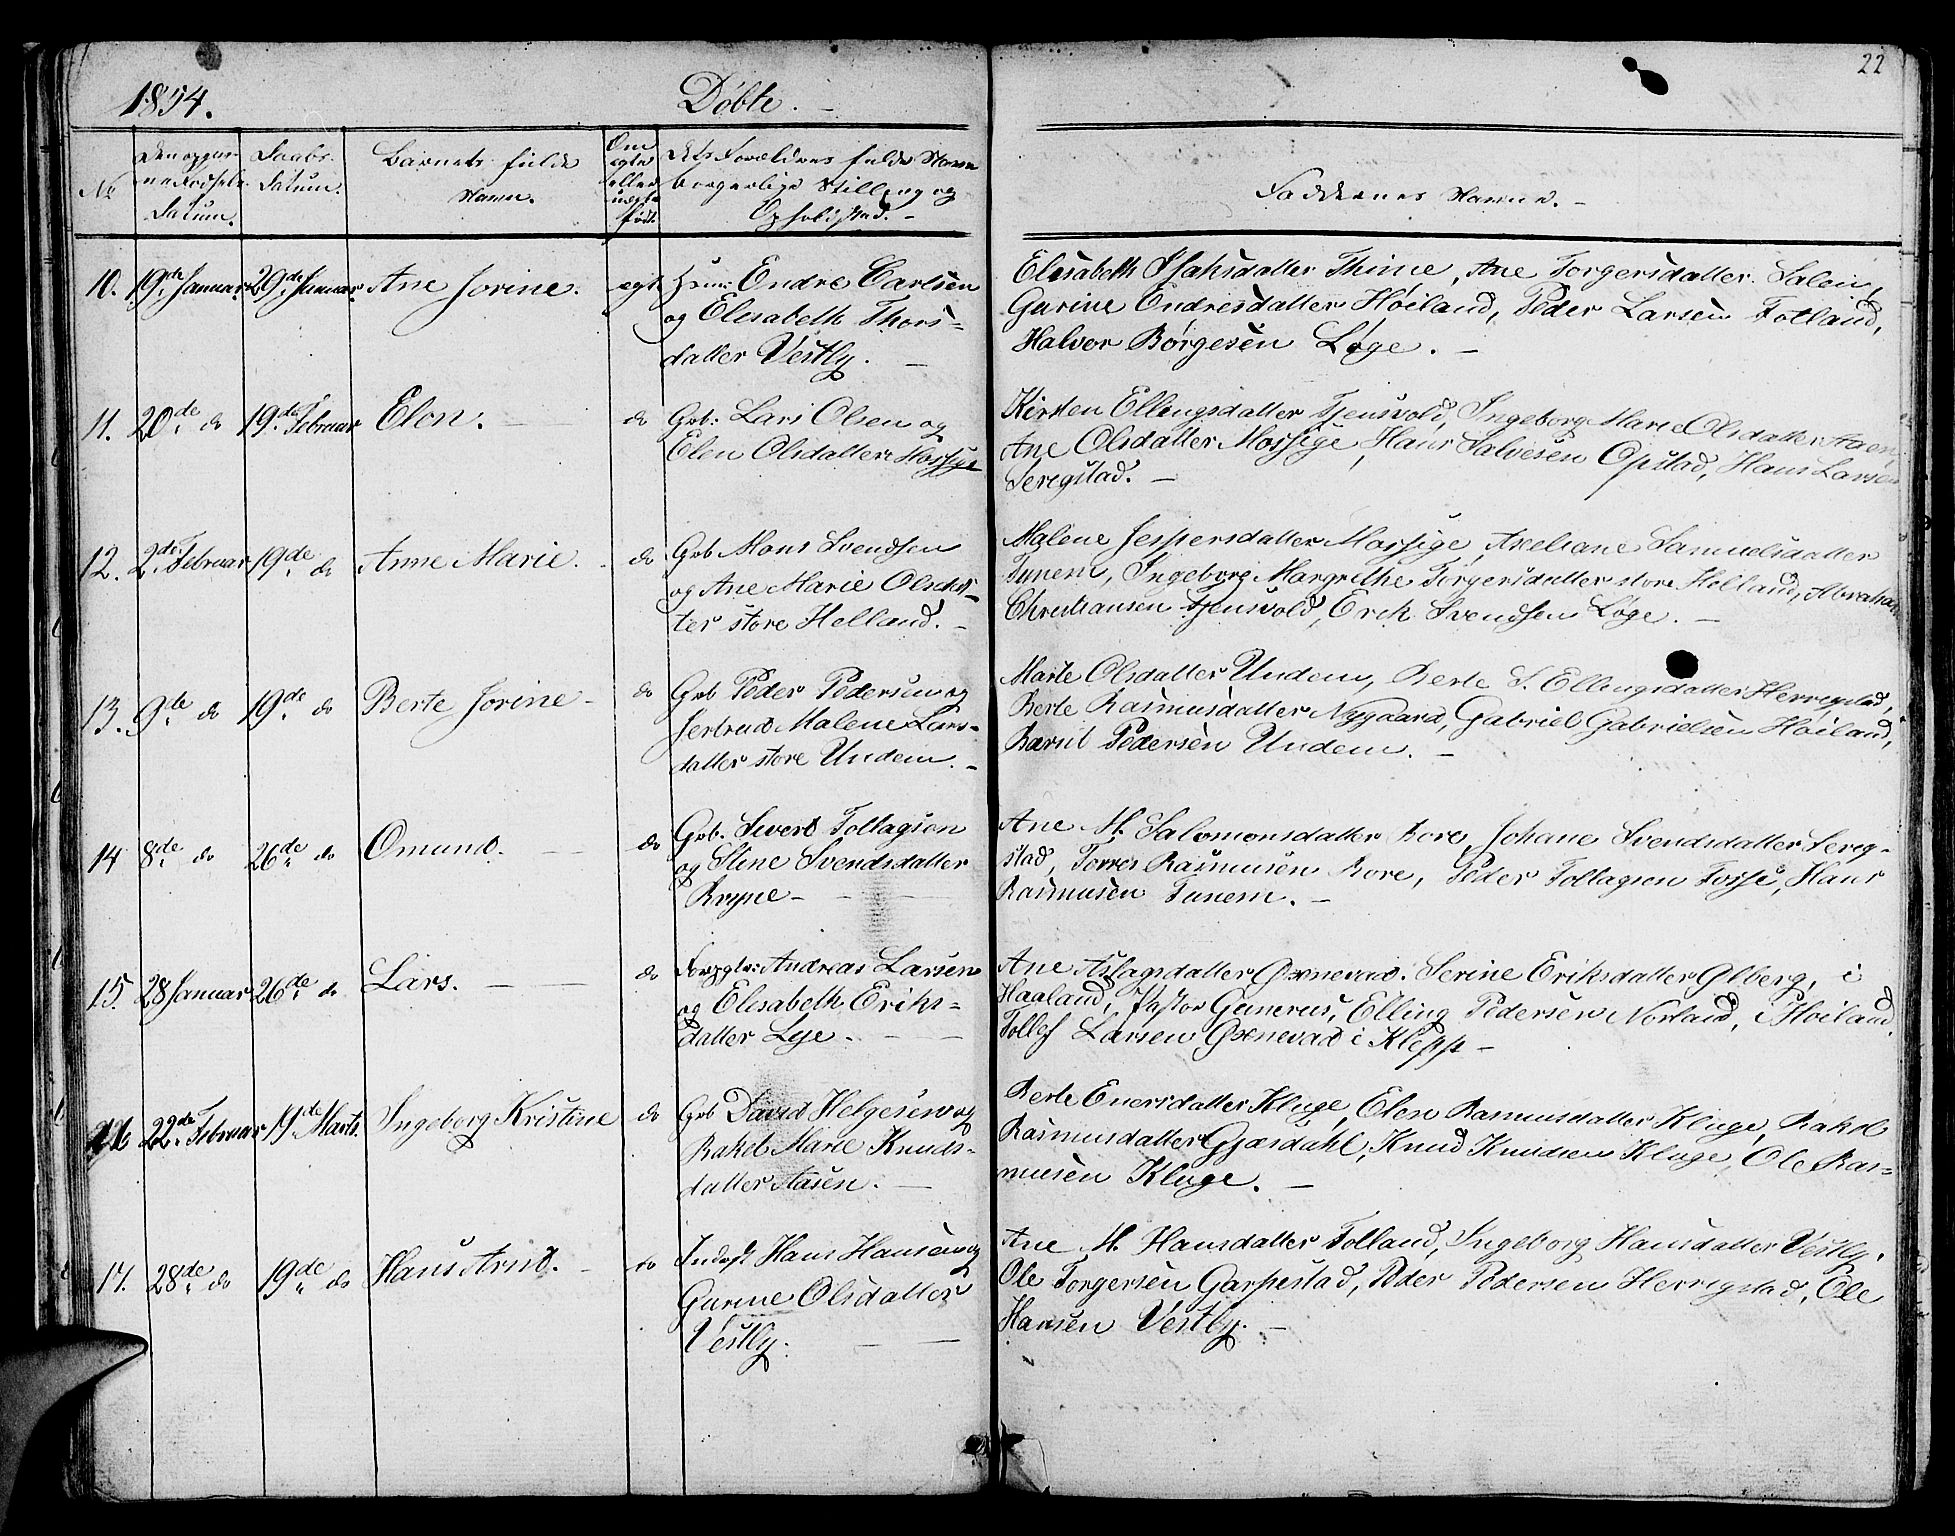 22
1854.
Døbte. -
No
Den opgiv-
ne Fødsels
Datum.
Daabs.
Datum.
Barnets fulde
Navn.
Om
egte
eller
uegte
født.
Dets Forældres fulde Navne
borgerlige Stilling og
Opholdsted. -
Faddernes Navne. -
10. 19de Januar. 29de Januar. Ane Jorine. egt Huusm: Endre Carlsen
og Elisabeth Thors-
datter Vestly. -
Elisabeth Isaksdatter Thime, Ane Torgersdatter Salen,
Gurine Endresdatter Høiland, Peder Larsen Fotland,
Halvor Børgesen Løge. -
11. 20de do 19de Februar Elen. - do Grb: Lars Olsen og
Elen Olsdatter Mossige
Kirsten Ellingsdatter Tjensvold, Ingeborg Marie Olsdatter Aaen,
Ane Olsdatter Mossige, Hans Salvesen Opstad, Hans Larsen
Seregstad. -
12. 2de Februar 19de do Anne Marie. - do Grb Mons Svendsen
og Ane Marie Olsdat-
ter store Helland. -
Malene Jespersdatter Mossige, Axeliane Samuelsdatter
Tunem, Ingeborg Margrethe Torgersdatter store Helland, Abraham
Christiansen Tjensvold, Erik Svendsen Løge. -
13. 9de do 19de do Berte Jorine - do Grb Peder Pedersen og
Jertrud Malene Lars-
datter store Undem. -
Marte Olsdatter Undem, Berte S. Ellingsdatter Herregstad,
Berte Rasmusdatter Nygaard, Gabriel Gabrielsen Høiland,
Baruld Pedersen Undem. -
14 8de do 26de do Omund. - do Grb. Sivert Tollagsen
og Stine Svendsdatter
Bryne - - -
Ane M. Salomonsdatter Bore, Johane Svendsdatter Sereg-
stad, Torres Rasmusen Bore, Peder Tollagsen Fosse, Hans
Rasmusen Tunem. -
15. 28 Januar 26de do Lars. - - do Forpgtr: Andreas Larsen
og Elisabeth Eriks-
datter Lye. - -
Ane Aslagsdatter Øxnevad. Serine Eriksdatter Ølberg, i
Haaland, Pastor Gunerus, Elling Pedersen Norland, i Høiland
Tollef Larsen Øxnevad i Klepp -
16 22de Februar 19de Marts. Ingeborg Kristine do Grb David Helgesen og
Rakel Marie Knuds-
datter Aasen. -
Berte Enersdatter Kluge, Elen Rasmusdatter Kluge, Rakel
Rasmusdatter Gjæsdahl, Knud Knudsen Kluge, Ole Ras-
musen Kluge. -
17. 28de do 19de do Hans Arnd. - do Inderst Hans Hansen og
Gurine Olsdatter
Vestly. - -
Ane M. Hansdatter Folland, Ingeborg Hansdatter Vestly,
Ole Torgersen Garpestad, Peder Pedersen Herregstad, Ole
Hansen Vestly. -